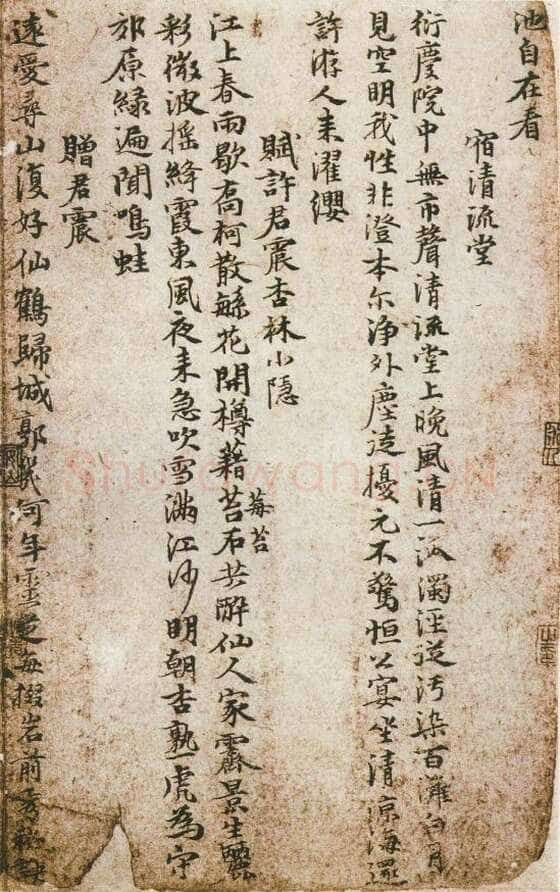 池自在看
宿清流堂
衍慶院中無市聲清流堂上晚風清一派濁涇從污染百灘白月
見空明我性非澄本尔淨外塵從擾元不驚恒公宴坐清涼海還
許游人來濯纓
賦許君震杏林小隱
江上春雨歇喬柯散繇花開樽藉苔石共醉仙人家霽景生
莓苔
彩微波搖絳霞東風夜來急吹雪滿江沙明朝杏熟虎為守
郊原綠遍聞鳴蛙
贈君震
遠愛尋山復好仙鶴歸城郭幾何年靈芝每掇岩前秀